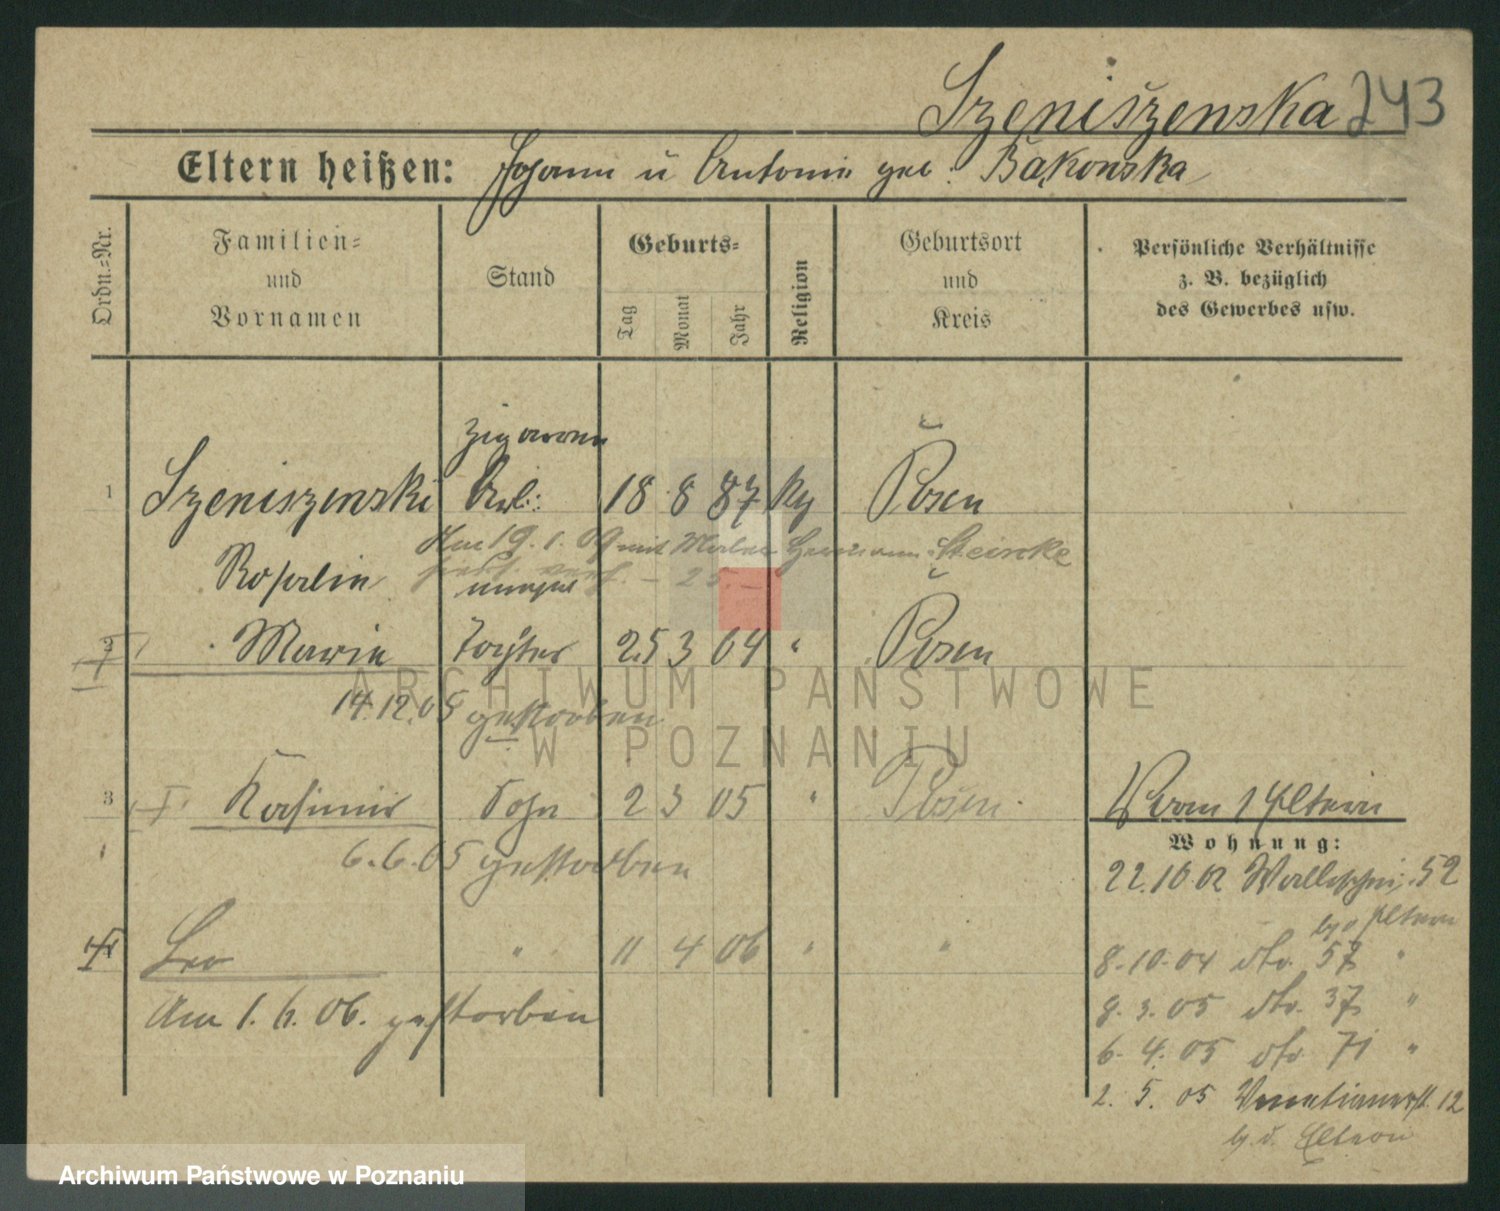 Szeniszenska 243
Eltern heißen: Johann u Antonie geb. Bakonska
Ordn.=Nr.
Familien=
und
Vornamen
Stand
Geburts=
Tag
Monat
Jahr
Religion
Geburtsort
und
Kreis
Persönliche Verhältnisse
z. B. bezüglich
des Gewerbes usw.
Zigarren
1 Szeniszenski Arb.: 18 8 87 Posen
Am 19. 1. 09 mit Maler Hermann Steincke
Rosalin
2 Marie Tochter 25 3 04 " Posen
14.12.05 gestorben
3 Kasimir Sohn 2 3 05 " Posen
6.6.05 gestorben
4 Leo " 11 4 06 " "
Am 1. 6. 06. gestorben
Eltern
Wohnung:
22.10.02 Wallischei 52
b/ d Eltern
8.10.04 dto. 57 "
8. 3. 05 dto. 37 "
6. 4. 05 dto 71 "
2. 5. 05 Venetianerst. 12
b. d. Eltern
ARCHIWUM PAŃSTWOWE
W POZNANIU
Archiwum Państwowe w Poznaniu